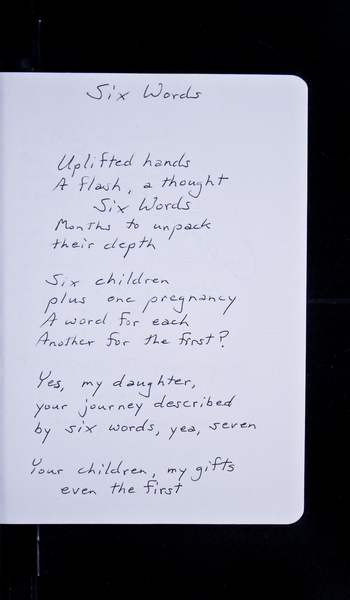 Six Words
Uplifted hands
A flash, a thought
Six Words
Months to unpack
their depth
Six children
plus one pregnancy
A word for each
Another for the first?
Yes, my daughter,
your journey described
by six words, yea, seven
Your children, my gifts
even the first